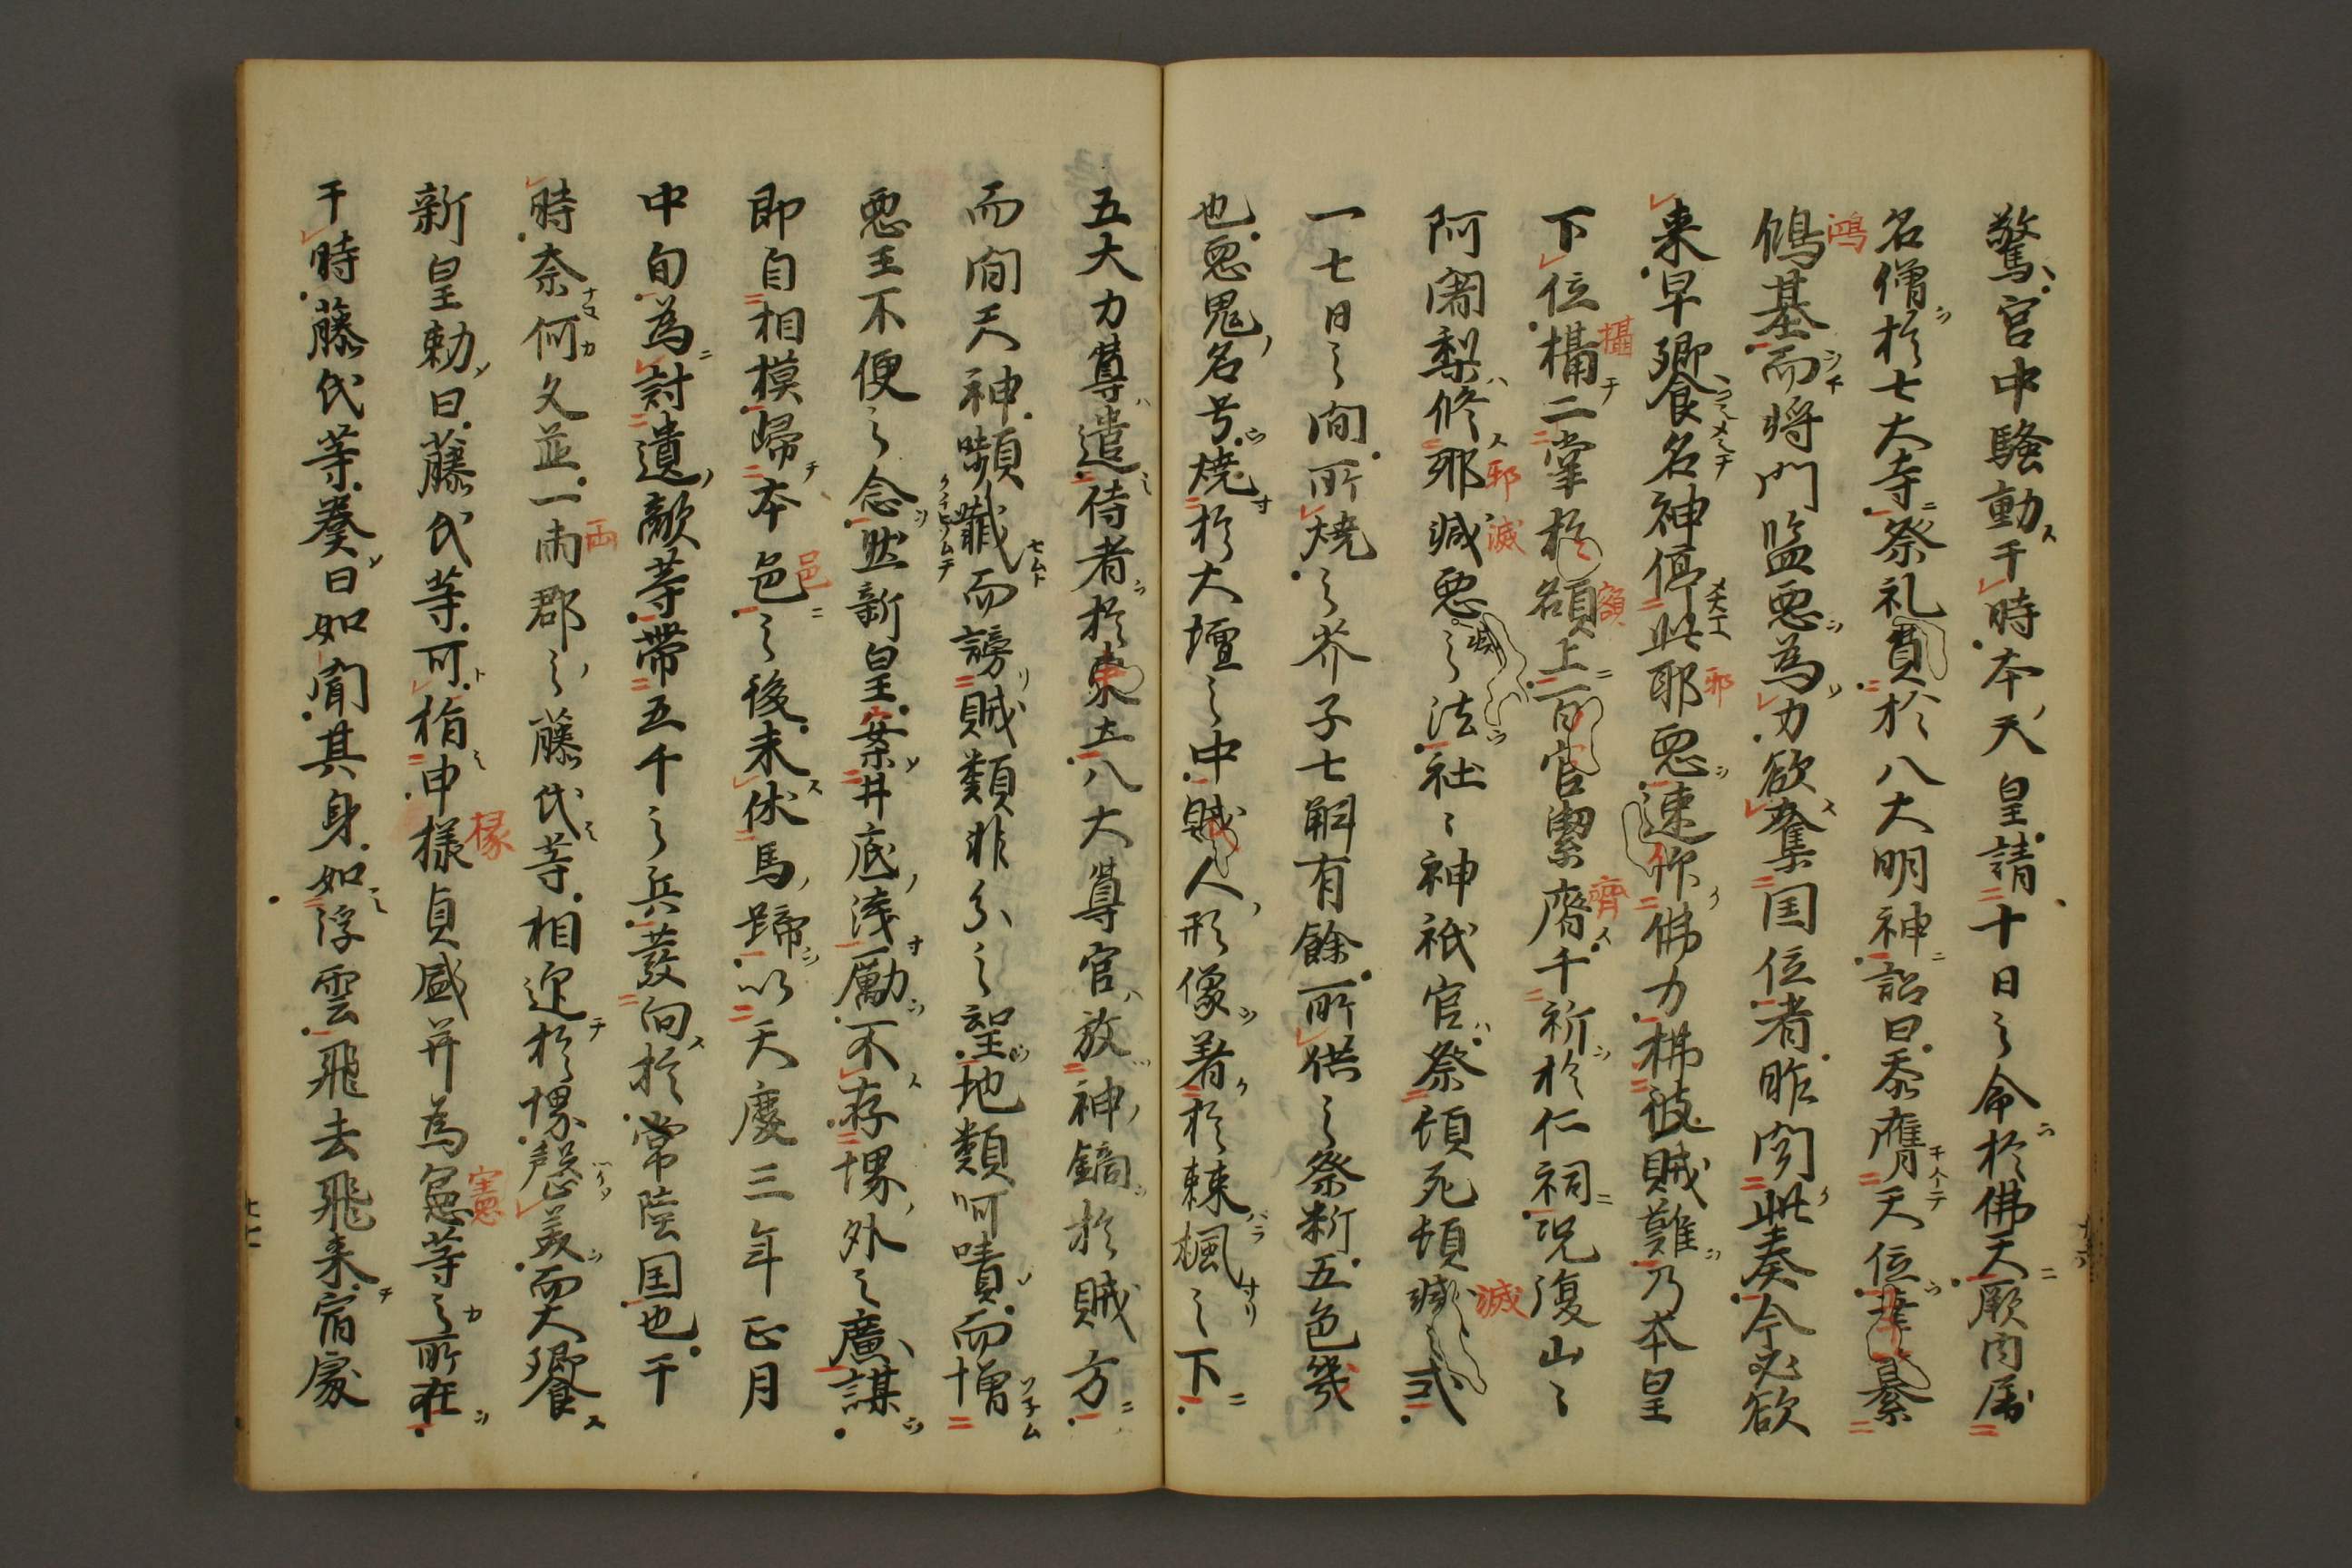 驚官中騒動干時本天皇請十日之命於佛天厥内屈
名僧於七大寺祭礼奠於八大明神詔曰忝膺天位幸纂
鴻基而将門監悪為力欲奪国位者昨聞此奏今必欲
来早饗名神停此耶悪速仰佛力拂彼賊難乃本皇
下位摺二掌於額上百官潔斎千祈於仁祠况復山〻
阿闍梨修邪滅悪之法社〻神祇官祭頓死頓滅之式
一七日之間所焼之芥子七斛有餘所供之祭料五色幾
也悪鬼名号焼於大壇之中賊人形像着於棘楓之下
五大力尊遣侍者於東土八大尊官放神鏑於賊方
而間天神嚬𪗱而謗賊類非分之望地類呵嘖而憎
悪王不便之念然新皇案井底浅励不存堺外之廣謀
即自相模帰本邑之後未休馬蹄以天慶三年正月
中旬為討遺敵等帯五千之兵發向於常陸国也干
時奈何久並一両郡之藤氏等相迎於堺罄美而大饗
新皇勅曰藤氏等可指申掾貞盛并為憲等之所在
干時藤氏等奏曰如聞其身如浮雲飛去飛来宿處
鴻
邪
摺
額
斎
邪
滅
滅
邑
両
掾
憲